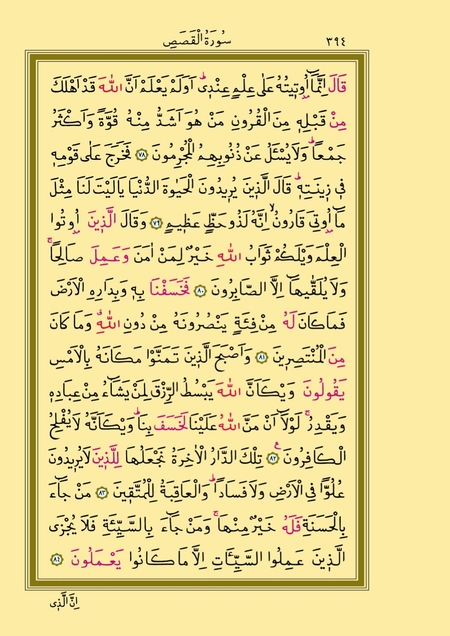 ٣٩٤ سُورَةُ الْقَصَصِ
قَالَ اِنَّمَٓا اُو۫ت۪يتُهُ عَلٰى عِلْمٍ عِنْد۪ىۜ اَوَلَمْ يَعْلَمْ اَنَّ اللّٰهَ قَدْ اَهْلَكَ
مِنْ قَبْلِه۪ مِنَ الْقُرُونِ مَنْ هُوَ اَشَدُّ مِنْهُ قُوَّةً وَاَكْثَرُ
جَمْعًاۜ وَلَا يُسْـَٔلُ عَنْ ذُنُوبِهِمُ الْمُجْرِمُونَ ﴿٧٨﴾ فَخَرَجَ عَلٰى قَوْمِه۪
ف۪ى ز۪ينَتِه۪ۜ قَالَ الَّذ۪ينَ يُر۪يدُونَ الْحَيٰوةَ الدُّنْيَا يَا لَيْتَ لَنَا مِثْلَ
مَٓا اُو۫تِىَ قَارُونُۙ اِنَّهُ لَذُو حَظٍّ عَظ۪يمٍ ﴿٧٩﴾ وَقَالَ الَّذ۪ينَ اُو۫تُوا
الْعِلْمَ وَيْلَكُمْ ثَوَابُ اللّٰهِ خَيْرٌ لِمَنْ اٰمَنَ وَعَمِلَ صَالِحًاۚ
وَلَا يُلَقّٰيهَٓا اِلَّا الصَّابِرُونَ ﴿٨٠﴾ فَخَسَفْنَا بِه۪ وَبِدَارِهِ الْاَرْضَ
فَمَا كَانَ لَهُ مِنْ فِئَةٍ يَنْصُرُونَهُ مِنْ دُونِ اللّٰهِۗ وَمَا كَانَ
مِنَ الْمُنْتَصِر۪ينَ ﴿٨١﴾ وَاَصْبَحَ الَّذ۪ينَ تَمَنَّوْا مَكَانَهُ بِالْاَمْسِ
يَقُولُونَ وَيْكَاَنَّ اللّٰهَ يَبْسُطُ الرِّزْقَ لِمَنْ يَشَٓاءُ مِنْ عِبَادِه۪
وَيَقْدِرُۚ لَوْلَٓا اَنْ مَنَّ اللّٰهُ عَلَيْنَا لَخَسَفَ بِنَاۜ وَيْكَاَنَّهُ لَا يُفْلِحُ
الْكَافِرُونَ۟ ﴿٨٢﴾ تِلْكَ الدَّارُ الْاٰخِرَةُ نَجْعَلُهَا لِلَّذ۪ينَ لَا يُر۪يدُونَ
عُلُوًّا فِى الْاَرْضِ وَلَا فَسَادًاۜ وَالْعَاقِبَةُ لِلْمُتَّق۪ينَ ﴿٨٣﴾ مَنْ جَٓاءَ
بِالْحَسَنَةِ فَلَهُ خَيْرٌ مِنْهَاۚ وَمَنْ جَٓاءَ بِالسَّيِّئَةِ فَلَا يُجْزَى
الَّذ۪ينَ عَمِلُوا السَّيِّـَٔاتِ اِلَّا مَا كَانُوا يَعْمَلُونَ ﴿٨٤﴾
اِنَّ الَّذ۪ى